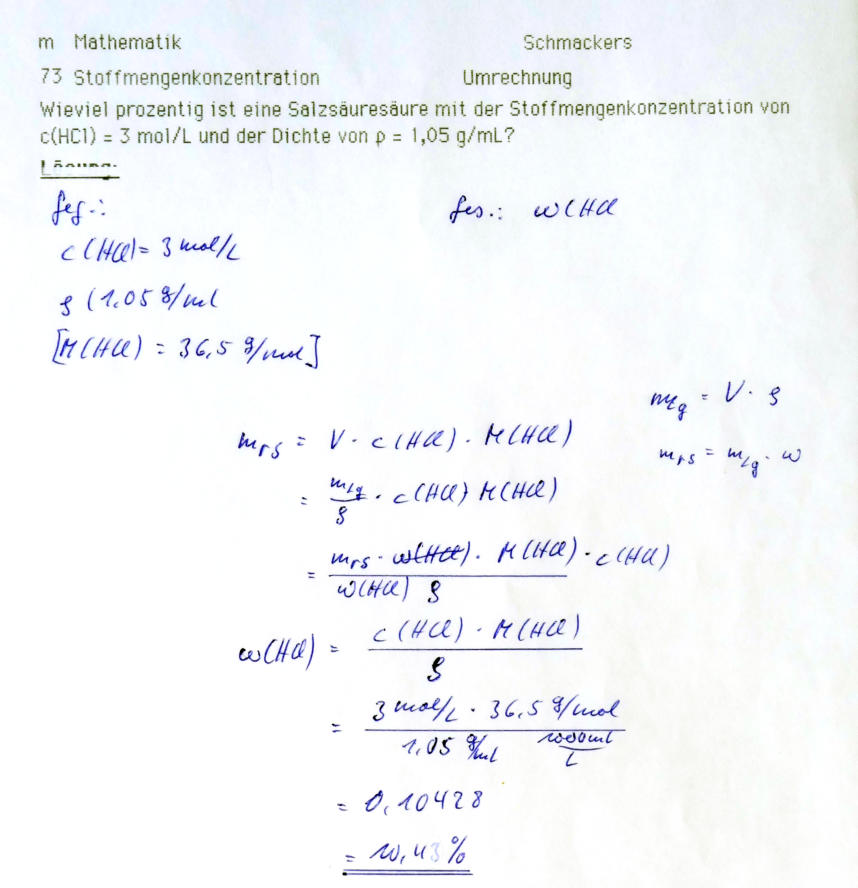 m Mathematik Schmackers
73 Stoffmengenkonzentration Umrechnung
Wieviel prozentig ist eine Salzsäuresäure mit der Stoffmengenkonzentration von
c(HCl) = 3 mol/L und der Dichte von ρ = 1,05 g/mL?
Lösung:
geg.: ges.: w(HCl
c(HCl) = 3 mol/L
ρ (1.05 g/ml
[M(HCl) = 36,5 g/mol]
m_Lg = V · ρ
m_rs = V · c(HCl) · M(HCl)
m_rs = m_Lg · w
= m_Lg/ρ · c(HCl) M(HCl)
= m_rs · w(HCl) · M(HCl) · c(HCl)
w(HCl) ρ
w(HCl) = c(HCl) · M(HCl)
ρ
= 3 mol/L · 36,5 g/mol
1,05 g/ml 1000ml/L
= 0,10428
= 10,43%